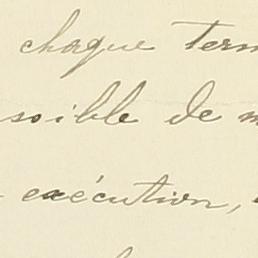 chaque Term
soible de m
exécution,